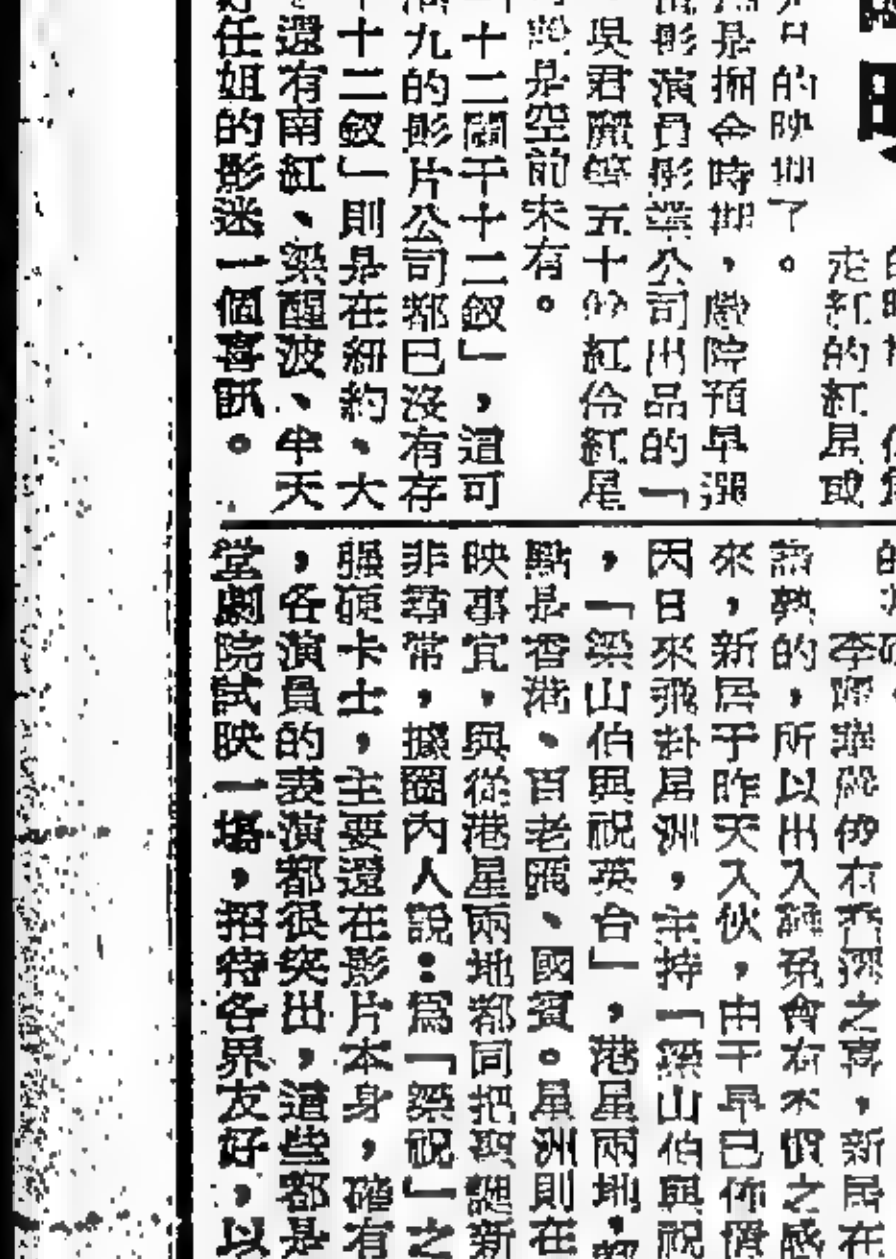 走紅的紅星或
的映期了。
是掘金時期，戲院預早選
演員影業公司出品的「
吳君麗等五十位紅伶紅星
是空前未有。
十二闌干十二釵」，這可
九的影片公司都已沒有存
十二釵」則是在紐約、大
還有南紅、梁醒波、半天
任姐的影迷一個喜訊。
李
的，所以出入
來，新居于昨天入伙，由于早已佈
因日來飛赴星洲，主持「梁山伯與祝
，「梁山伯與祝英台」，港星兩地，
點是香港、百老匯、國賓。星洲則在
映事宜，與從港星兩地都同把聖誕新
非尋常，據圈內人說：爲「梁祝」之
強硬卡士，主要還在影片本身，確有
，各演員的表演都很突出，這些都是
堂劇院試映一場，招待各界友好，以